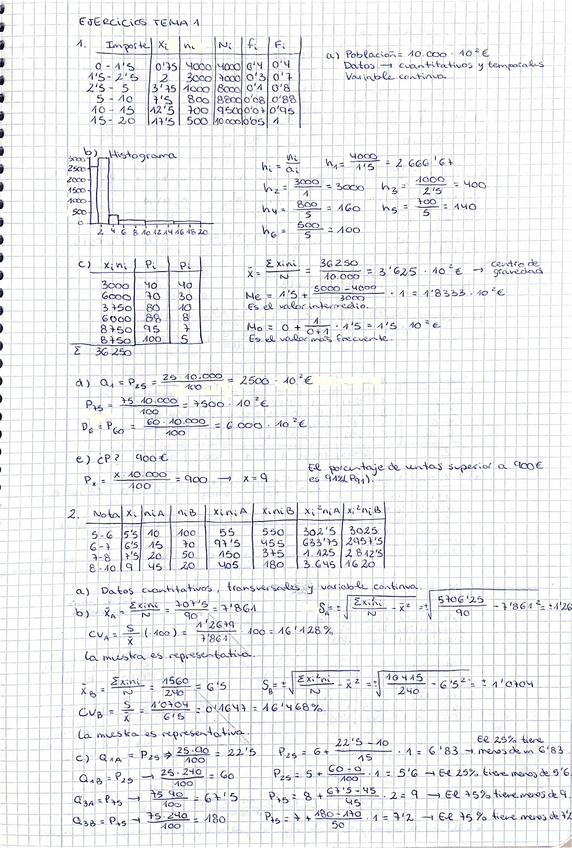 EJERCICIOS TEMA 1
1. Importe Xi ni Ni fi Fi
0 - 1'5 0'75 4000 4000 0'4 0'4
1'5 - 2'5 2 3000 7000 0'3 0'7
2'5 - 5 3'75 1000 8000 0'1 0'8
5 - 10 7'5 800 8800 0'08 0'88
10 - 15 12'5 700 9500 0'07 0'95
15 - 20 17'5 500 10000 0'05 1
a) Población = 10.000 · 10²€
Datos → cuantitativos y temporales
Variable continua
b) Histograma
3000
2500
2000
1500
1000
500
0
2 4 6 8 10 12 14 16 18 20
hi = ni/ai h1 = 4000/1'5 = 2 666'67
h2 = 3000/1 = 3000 h3 = 1000/2'5 = 400
h4 = 800/5 = 160 h5 = 700/5 = 140
h6 = 500/5 = 100
c) xini Pi Pi
3000 40 40
6000 70 30
3750 80 10
6000 88 8
8750 95 7
8750 100 5
Σ 36250
x̄ = Σxini/N = 36250/10.000 = 3'625 · 10²€ → centro de gravedad
Me = 1'5 + 5000-4000/3000 · 1 = 1'8333 · 10²€
Es el valor intermedio.
Mo = 0 + 1/0+1 · 1'5 = 1'5 · 10²€
Es el valor más frecuente.
d) Q1 = P25 = 25·10.000/100 = 2500 · 10²€
P75 = 75·10.000/100 = 7500 · 10²€
D6 = P60 = 60·10.000/100 = 6.000 · 10²€
e) ¿P? 900€
Px = x·10.000/100 = 900 → x = 9
El porcentaje de ventas superior a 900€
es 91% (P91).
2. Nota xi niA niB xiniA xiniB xi²niA xi²niB
5-6 5'5 10 100 55 550 302'5 3025
6-7 6'5 15 70 97'5 455 633'75 2957'5
7-8 7'5 20 50 150 375 1.125 2812'5
8-10 9 45 20 405 180 3.645 1620
a) Datos cuantitativos, transversales y variable continua.
b) x̄A = Σxini/N = 707'5/90 = 7'861 SA = ±√Σxi²ni/N - x̄² = ±√5706'25/90 - 7'861² = ±1'26
CVA = S/x̄ (·100) = 1'2679/7'861 · 100 = 16'128%
La muestra es representativa.
x̄B = Σxini/N = 1560/240 = 6'5 SB = ±√Σxi²ni/N - x̄² = ±√10415/240 - 6'5² = ±1'0704
CVB = S/x̄ = 1'0704/6'5 = 0'1647 = 16'468%
La muestra es representativa.
c) Q1A = P25 → 25·90/100 = 22'5 P25 = 6 + 22'5-10/15 · 1 = 6'83 → El 25% tiene menos de un 6'83
Q1B = P25 → 25·240/100 = 60 P25 = 5 + 60-0/100 · 1 = 5'6 → El 25% tiene menos de 5'6
Q3A = P75 → 75·90/100 = 67'5 P75 = 8 + 67'5-45/45 · 2 = 9 → El 75% tiene menos de 9.
Q3B = P75 → 75·240/100 = 180 P75 = 7 + 180-170/50 · 1 = 7'2 → El 75% tiene menos de 7'2